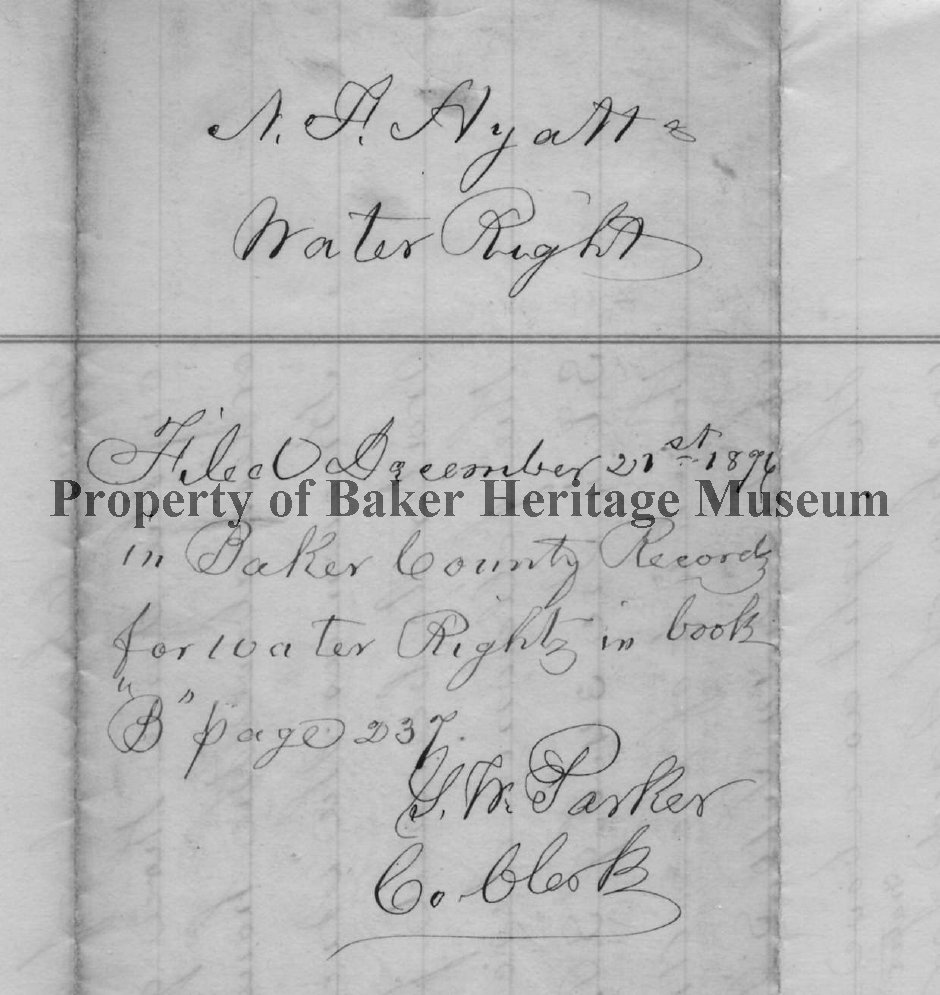 N. F. Hyatts
Water Right
Filed December 21st 1896
Property of Baker Heritage Museum
in Baker County Records
for water Rights in book
"B" page 237.
G. W. Parker
Co. Clerk